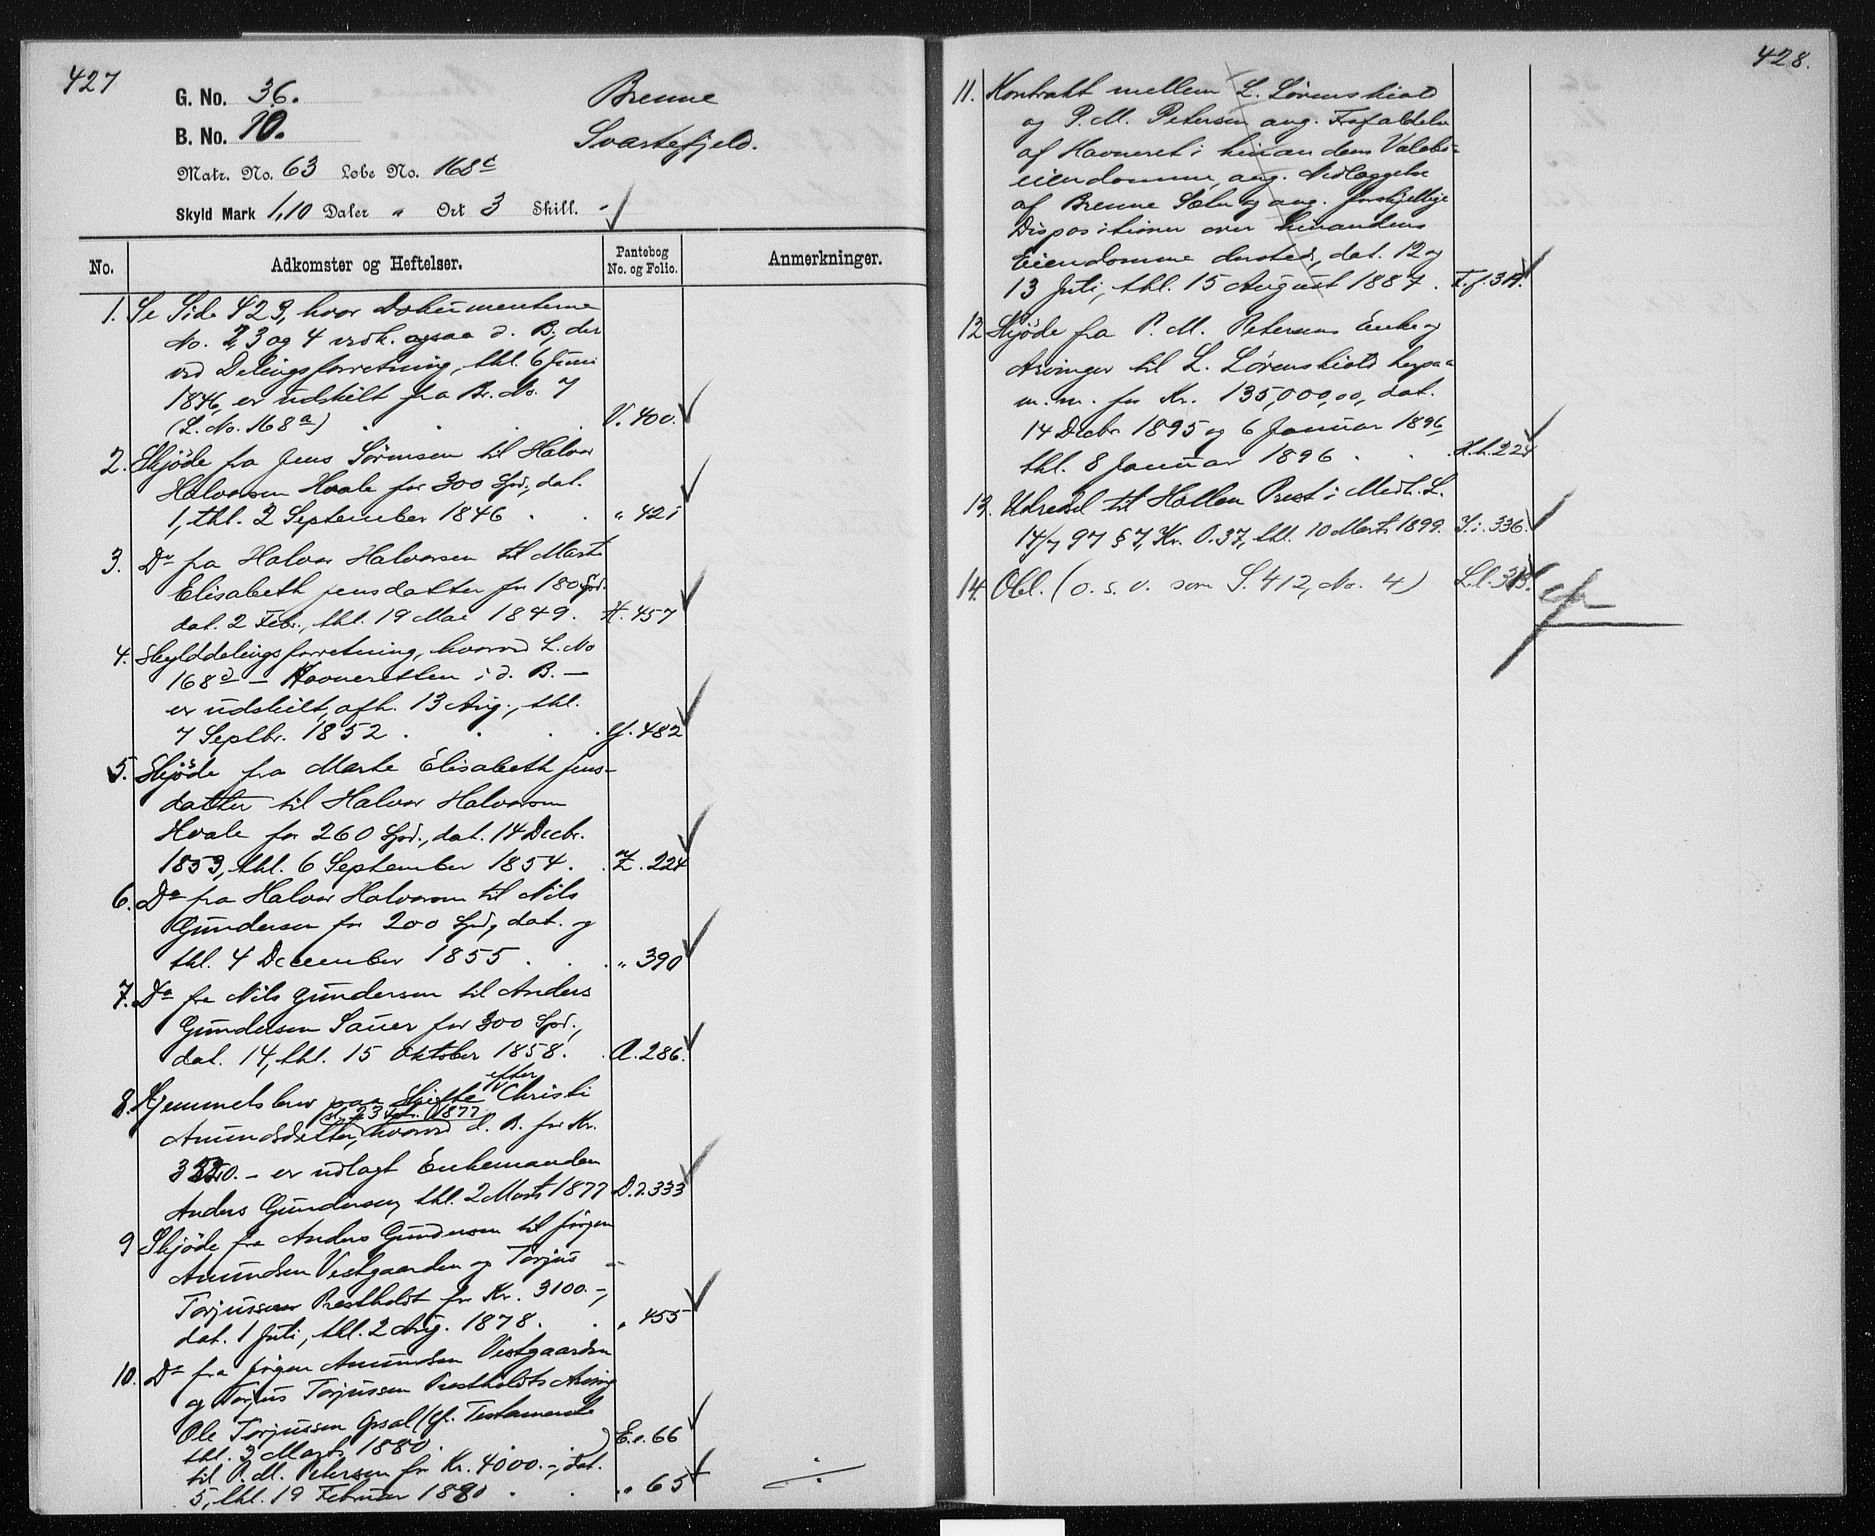 427
G. No. 36.
B. No. 10.
Brenne
Svartefjeld.
Matr. No. 63 Løbe No. 168c
Skyld Mark 1,10 Daler " Ort 3 Skill. "
No.
Adkomster og Heftelser.
Pantebog No. og Folio.
Anmerkninger.
1. Se Side 423, hvor Dokumenterne
No. 2, 3 og 4 vedk. ogsaa d. B., der
ved Delingsforretning, thl. 6 Juni
1846, er udskilt fra Br. No. 7
(L. No. 168a) . . . V. 400.
2. Skjøde fra Jens Sørensen til Halvor
Halvorsen Hvale for 300 Spd., dat.
1, thl. 2 September 1846 . . " 421
3. Do fra Halvor Halvorsen til Marte
Elisabeth Jensdatter for 180 Spd.
dat. 2 Febr., thl. 19 Mai 1849. X. 457
4. Skylddelingsforretning, hvorved L. No
168d – Havneretten i d. B. –
er udskilt, afh. 13 Aug., thl.
7 Septbr. 1852 . . . Y. 482
5. Skjøde fra Marte Elisabeth Jens-
datter til Halvor Halvorsen
Hvale for 260 Spd., dat. 14 Decbr.
1853, thl. 6 September 1854. . Z. 224
6. Do fra Halvor Halvorsen til Nils
Gundersen for 200 Spd., dat. og
thl. 4 December 1855 . . " 390
7. Do fra Nils Gundersen til Anders
Gundersen Sauer for 300 Spd.,
dat. 14, thl. 15 Oktober 1858. . A. 286.
8. Hjemmelsbrev paa Skifte efter Christi
Amundsdatter, (sl. 23 Febr. 1877) hvorved d. B. for Kr.
er udlagt Enkemanden
Anders Gundersen, thl. 2 Marts 1877 D.d. 333
9 Skjøde fra Anders Gundersen til Jørgen
Amundsen Vestgaarden og Torjus
Torjussen Prestholdt for Kr. 3100.-,
dat. 1 Juli, thl. 2 Aug. 1878. . " 455
10. Do fra Jørgen Amundsen Vestgaarden
og Torjus Torjussen Prestholdts Arving
Ole Torjussen Opsal (cfr. Testamente
thl. 3 Marts 1880. . .) E.e. 66
til P. M. Petersen for Kr. 4000.-, dat.
5, thl. 19 Februar 1880 . . " 65
428.
11. Kontrakt mellem L. Løvenskiold
og P. M. Petersen ang. Frafaldelse
af Havneret i hinandens Valebø-
eiendomme, ang. Nedlæggelse
af Brenne Sæter og ang. forskjellige
Dispositioner over hinandens
Eiendomme dersted, dat. 12 og
13 Juli, thl. 15 August 1884. F.f. 311.
12 Skjøde fra P. M. Petersens Enke og
Arvinger til L. Løvenskiold herpaa
m. m. for Kr. 135,000,00, dat.
14 Decbr. 1895 og 6 Januar 1896,
thl. 8 Januar 1896 . . H.h. 224
13. Udredsel til Hollen Prest i Medh. L.
14/7 97 § 7, Kr. 0.37, thl. 10 Marts 1899. I.i. 336.
14. Obl. (o. s. v. som S. 412, No. 4) L.l. 313.